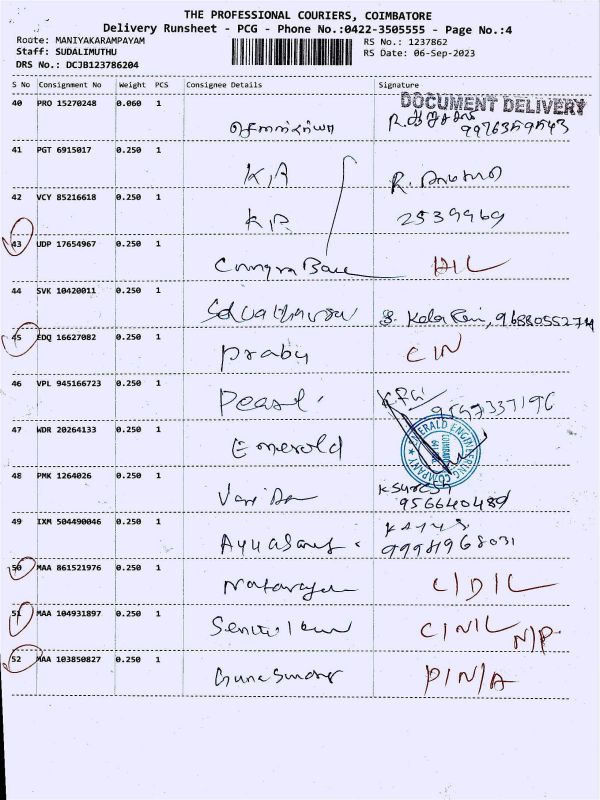 THE PROFESSIONAL COURIERS, COIMBATORE
Delivery Runsheet - PCG - Phone No.:0422-3505555 - Page No.:4
Route: MANIYAKARAMPAYAM
RS No.: 1237862
Staff: SUDALIMUTHU
RS Date: 06-Sep-2023
DRS No.: DCJB123786204
S No Consignment No Weight PCS Consignee Details Signature
DOCUMENT DELIVERY
40 PRO 15270248 0.060 1
41 PGT 6915017 0.250 1
K,A
42 VCY 85216618 0.250 1
K,R 2539969
43 UDP 17654967 0.250 1
44 SVK 10420011 0.250 1
45 EDQ 16627082 0.250 1
Prabu
46 VPL 945166723 0.250 1
Pearl. 9597337196
47 WDR 20264133 0.250 1
Emerald
EMERALD ENGINEERING COMPANY
48 PMK 1264026 0.250 1
K Suresh
9566404089
49 IXM 504490046 0.250 1
50 MAA 861521976 0.250 1
Natarajan C/D/L
51 MAA 104931897 0.250 1
C/N/L N/P
52 MAA 103850827 0.250 1
Guna Sundar P/N/A